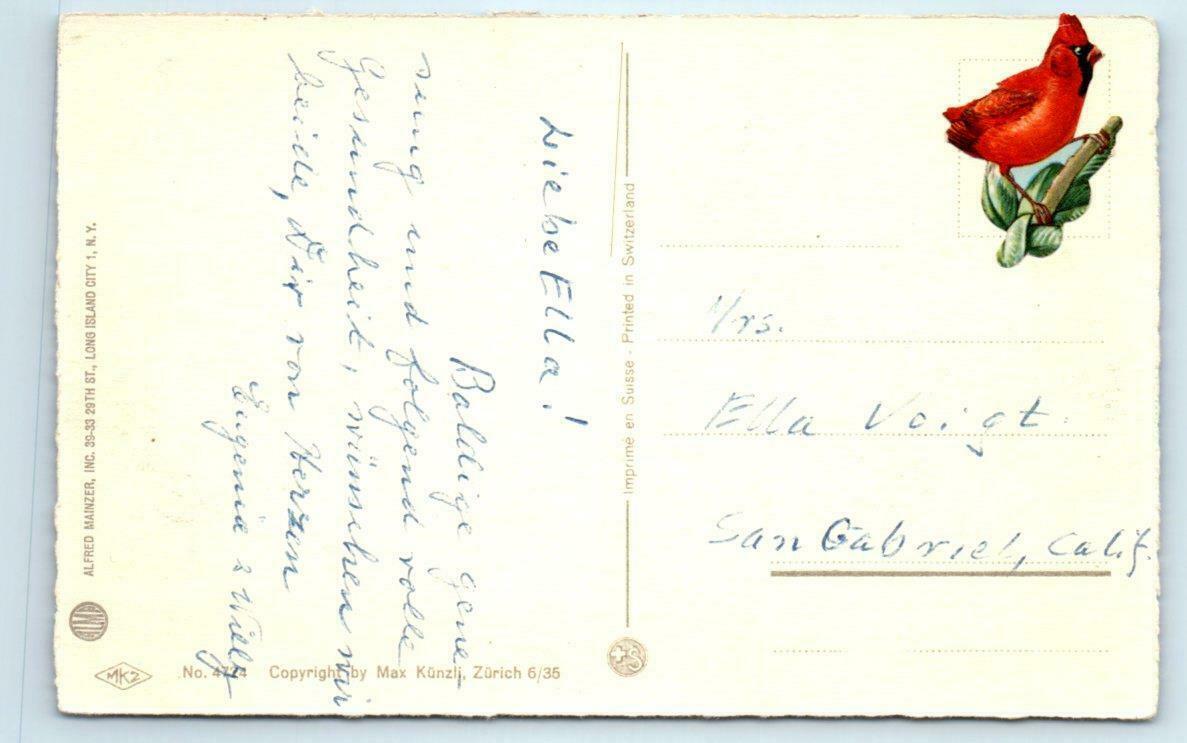 Liebe Ella!
Baldige Gene-
sung und folgend volle
Gesundheit, wünschen wir
beide, Dir von Herzen
Eugenia & Willy
Imprimé en Suisse - Printed in Switzerland
Mrs.
Ella Voigt.
San Gabriel, Calif.
ALFRED MAINZER, INC. 39-33 29TH ST., LONG ISLAND CITY 1, N.Y.
ALMA
MKZ
No. 4724 Copyright by Max Künzli, Zürich 6/35